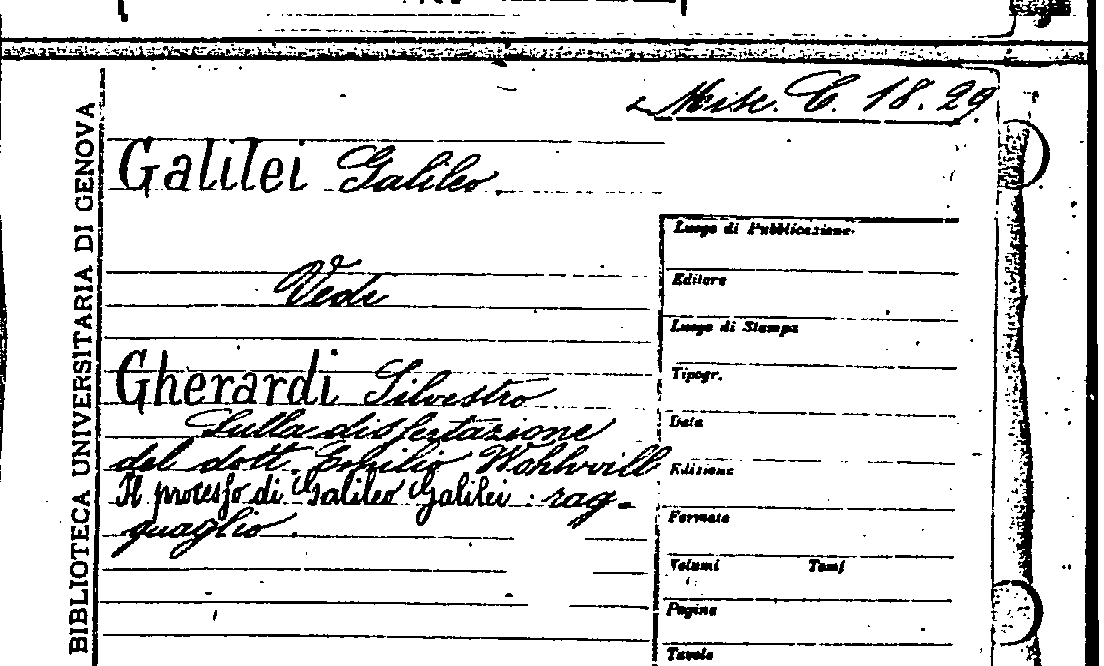 Misc. C. 18. 29
BIBLIOTECA UNIVERSITARIA DI GENOVA
Galilei Galileo.
Vedi
Gherardi Silvestro
Sulla dissertazione
del dott. Emilio Wohlwill
Il processo di Galileo Galilei: rag-
guaglio.
Luogo di Pubblicazione
Editore
Luogo di Stampa
Tipogr.
Data
Edizione
Formato
Volumi Tomi
Pagine
Tavole